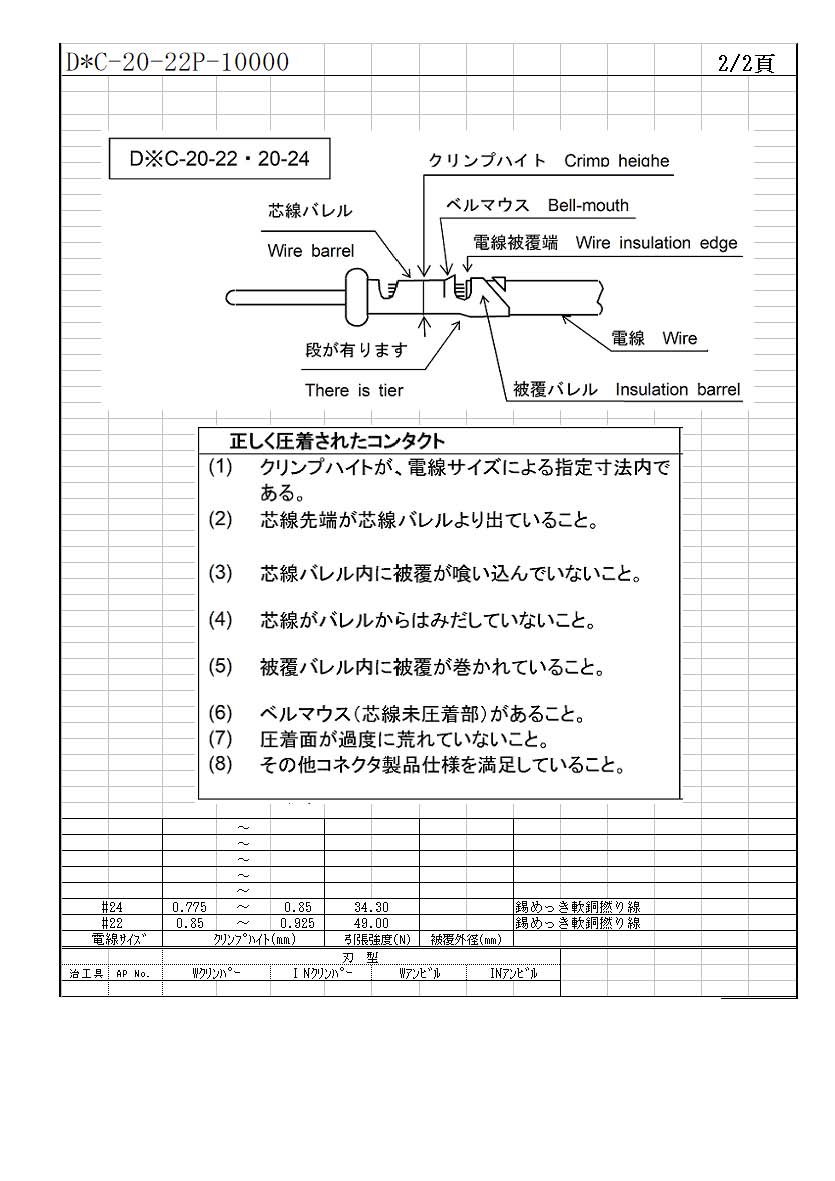 D*C-20-22P-10000
2/2頁
D※C-20-22・20-24
クリンプハイト Crimp heighe
ベルマウス Bell-mouth
芯線バレル
電線被覆端 Wire insulation edge
Wire barrel
電線 Wire
段が有ります
被覆バレル Insulation barrel
There is tier
正しく圧着されたコンタクト
(1) クリンプハイトが、電線サイズによる指定寸法内で
ある。
(2) 芯線先端が芯線バレルより出ていること。
(3) 芯線バレル内に被覆が喰い込んでいないこと。
(4) 芯線がバレルからはみだしていないこと。
(5) 被覆バレル内に被覆が巻かれていること。
(6) ベルマウス(芯線未圧着部)があること。
(7) 圧着面が過度に荒れていないこと。
(8) その他コネクタ製品仕様を満足していること。
～
～
～
～
～
#24 0.775 ～ 0.85 34.30 錫めっき軟銅撚り線
#22 0.85 ～ 0.925 49.00 錫めっき軟銅撚り線
電線ｻｲｽﾞ ｸﾘﾝﾌﾟﾊｲﾄ(mm) 引張強度(N) 被覆外径(mm)
刃 型
治工具 AP No. Wｸﾘﾝﾊﾟｰ INｸﾘﾝﾊﾟｰ Wｱﾝﾋﾞﾙ INｱﾝﾋﾞﾙ